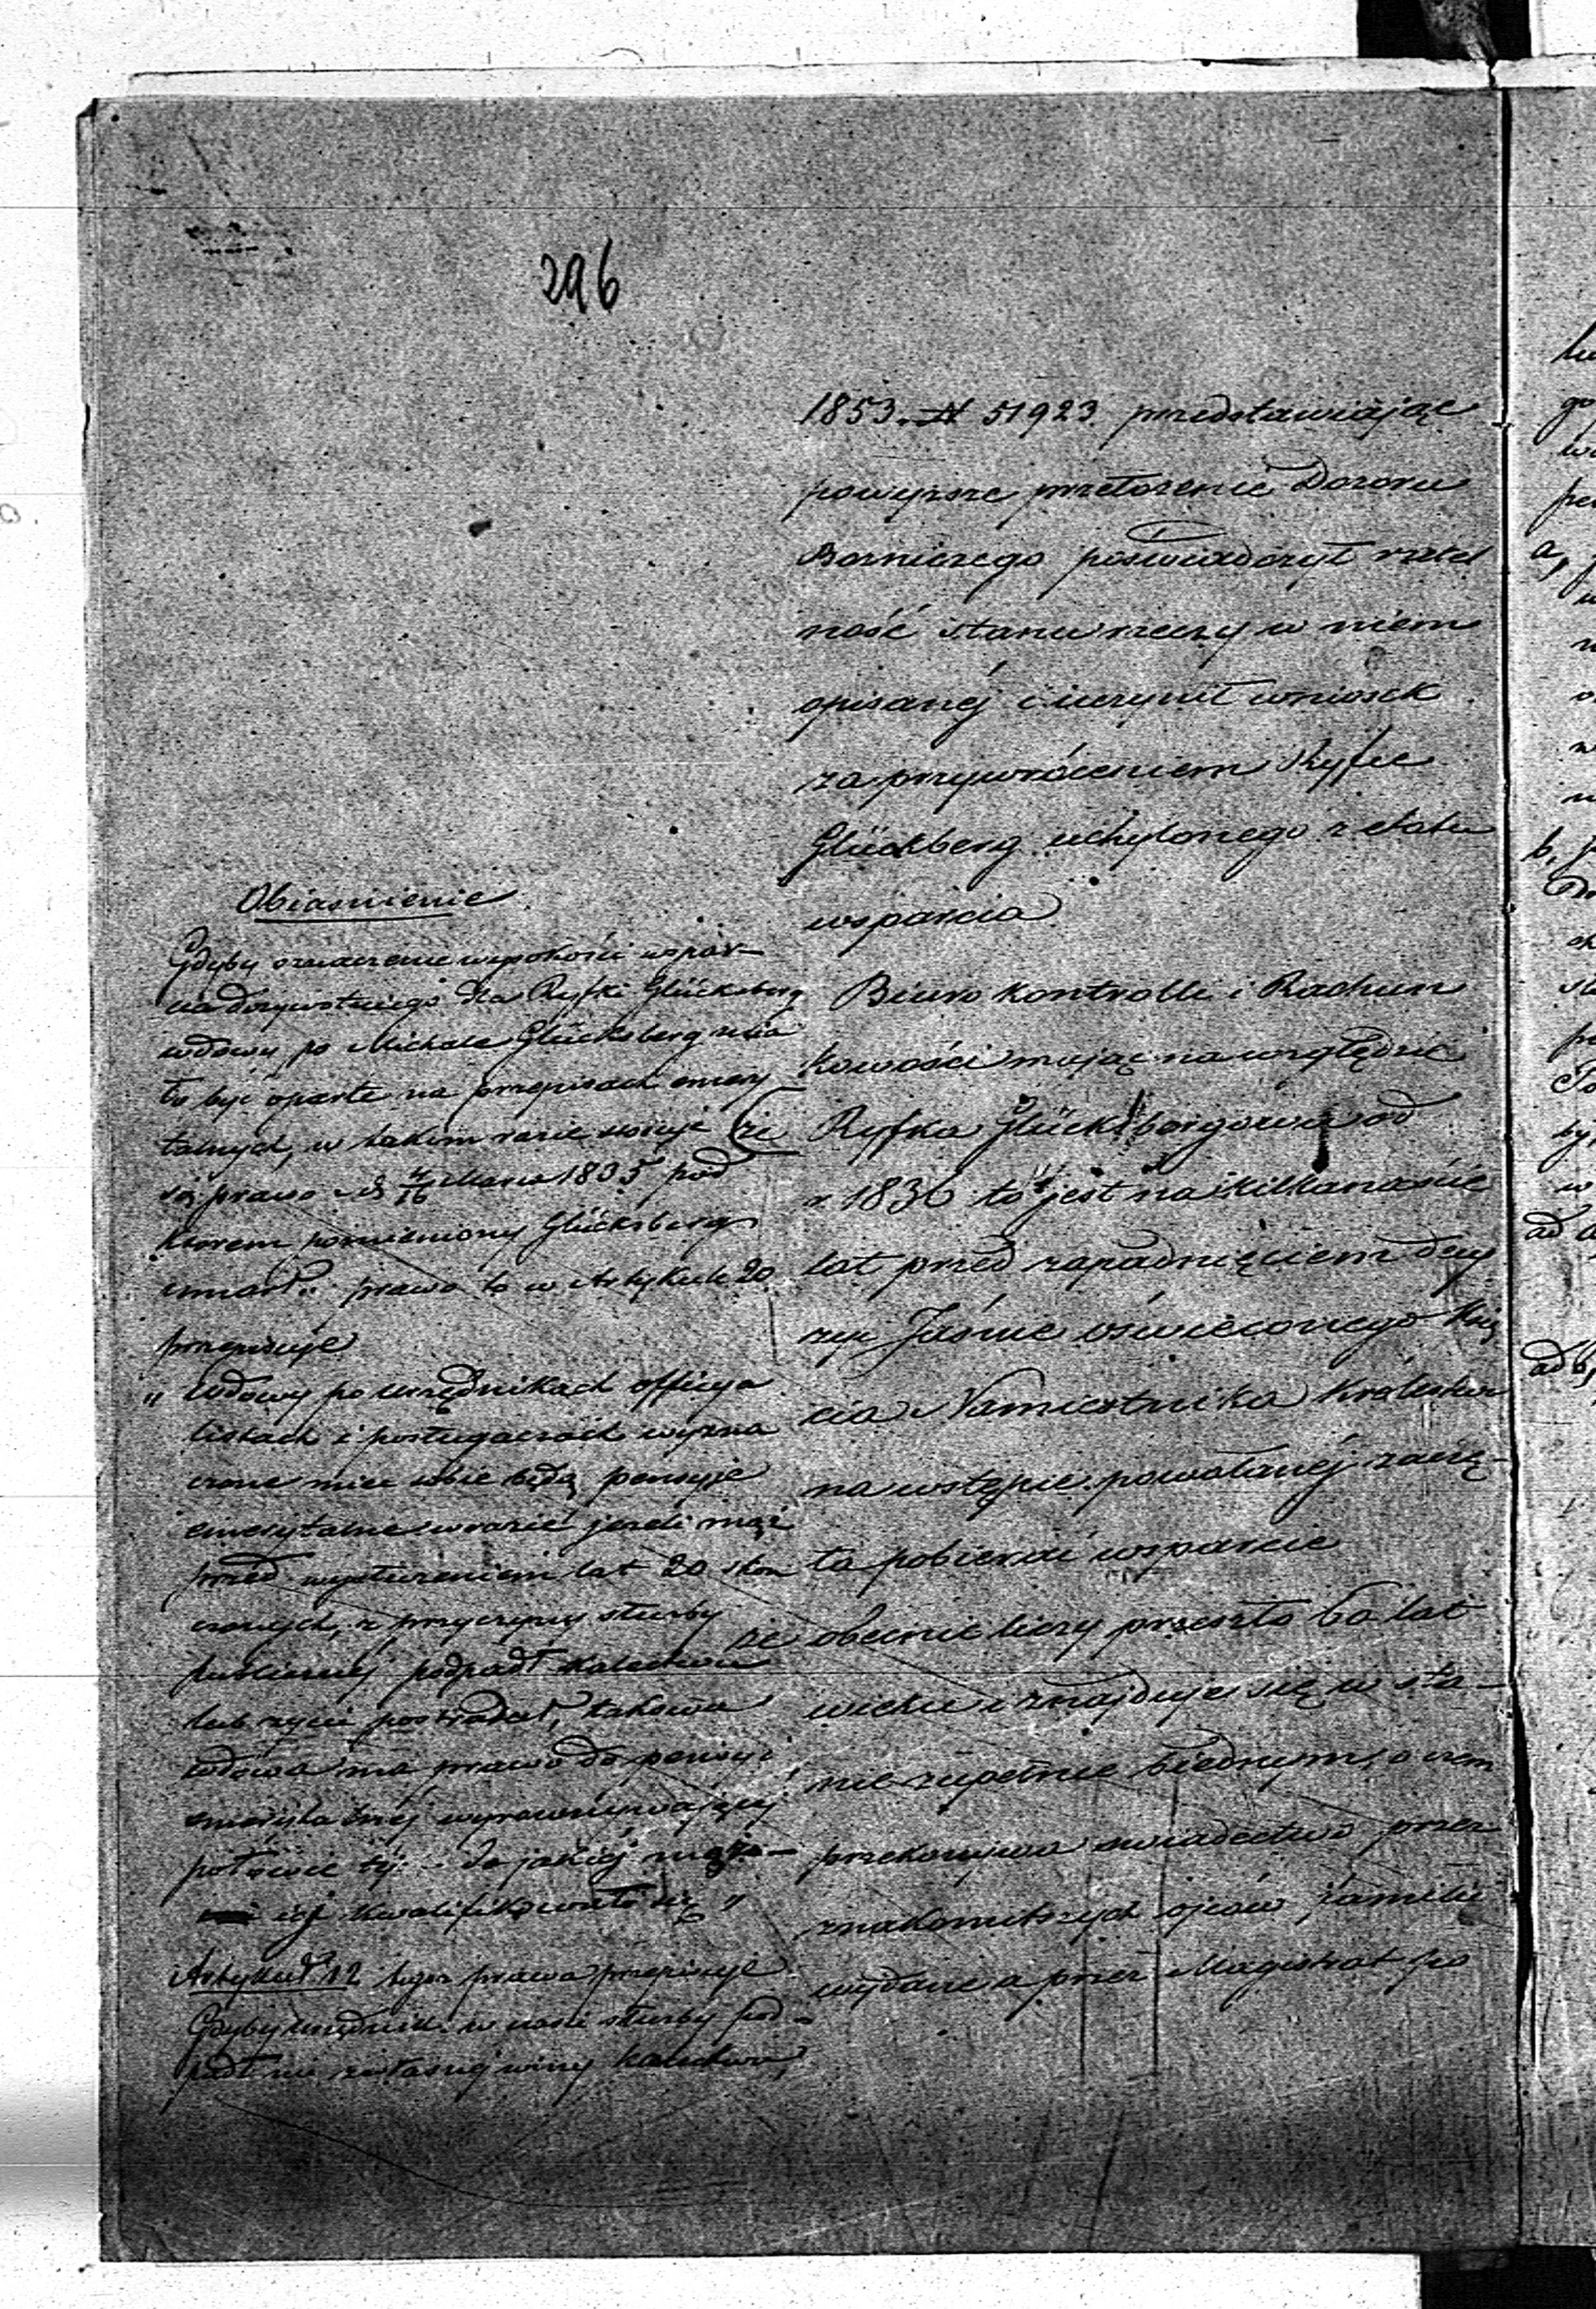 296
1853. N 51923. przedstawiając
powyższe przełożenie Dozoru
Bozniczego poświadczył rzetel
ność stanu rzeczy w niem
opisanéj i uczynił wniosek
za przywróceniem Ryfce
Glückberg uchylonego z etatu
wsparcia
Biuro Kontrolli i Rachun
kowości mając na względzie
że Ryfka Glücksbergowa od
r 1836 to jest na kilkanaście
lat przed zapadnięciem decy
zyi Jaśnie oświeconego Xię
cia Namiestnika Królestwa
na wstępie powołanéj zaczę-
ła pobierać wsparcie
że obecnie liczy przeszło 60 lat
wieku i znajduje się w sta-
nie zupełnie biednym, o czem
przekonywa świadectwo przez
znakomitszych ojców familii
wydane a przez Magistrat po
Obiasnienie
Gdyby oznaczenie wysokości wspar-
cia dożywotniego dla Ryfki Glücksberg
wdowy po Michale Glücksberg mia
ło być oparte na przepisach emery
talnych, w takim razie stosuje
się prawo z d 4/16 Marca 1835 pod
ktorem pomieniony Glücksberg
umarł. prawo to w Artykule 20
przepisuje
„ Wdowy po urzędnikach officya
listach i posługaczach wyzna
czone mieć sobie będą pensyje
emerytalne w razie jeżeli mąż
przed wysłużeniem lat 20 skoń
czonych, z przyczyny służby
publicznéj podpadł kalectwu
lub życie postradał, takowa
wdowa ma prawo do pensyi
emerytalnéj wyrównywającéj
połowie téj do jakiéj męża
jej kwalifikowało się „
Artykuł 12 tegoż prawa przepisuje
Gdyby urzędnik w czasie służby pod-
padł nie z własnej winy kalectwu,